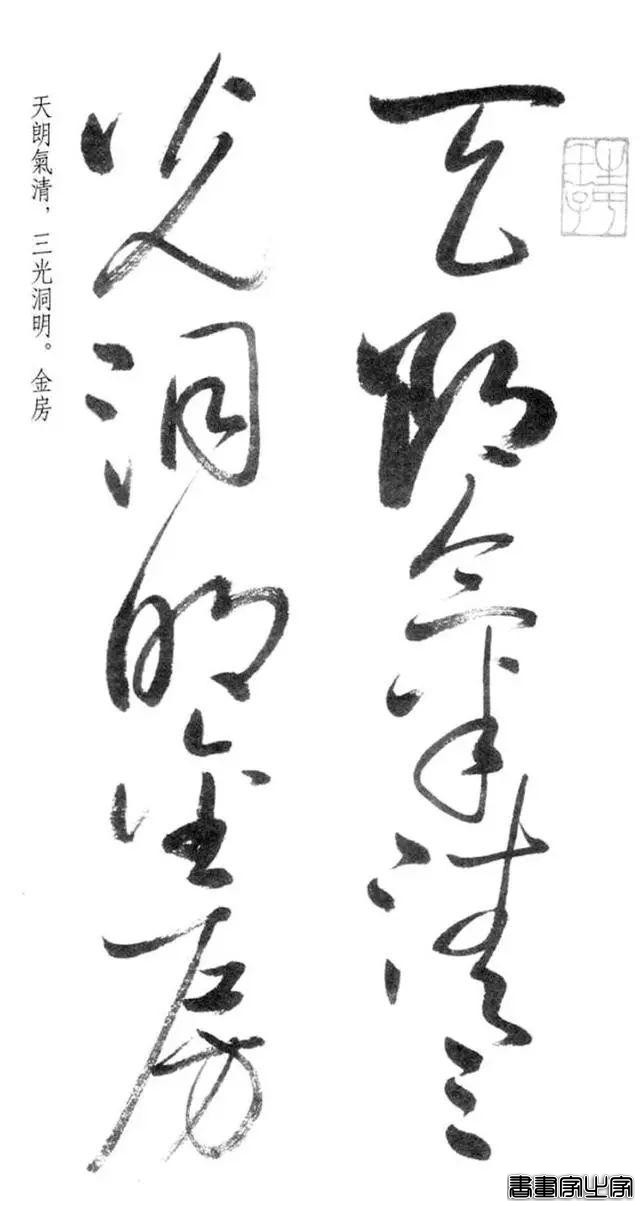 天朗氣清三
光洞明金房
天朗氣清，三光洞明。金房
書畫家必家